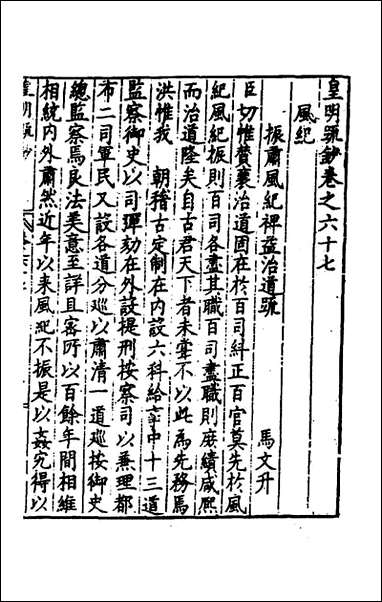 皇明疏鈔卷之六十七
風紀
振肅風紀裨益治道疏
馬文升
臣切惟贊襄治道固在於百司糾正百官莫先於風
紀風紀振則百司各盡其職百司盡職則庶績咸熙
而治道隆矣自古君天下者未嘗不以此為先務焉
洪惟我 朝稽古定制在內設六科給事中十三道
監察御史以司彈劾在外設提刑按察司以兼理都
布二司軍民又設各道分巡以肅清一道巡按御史
總監察焉良法美意至詳且密所以百餘年間相維
相統內外肅然近年以来風紀不振是以姦宄得以
皇明疏鈔